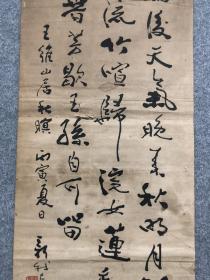 後天氣晚来秋明月
流竹喧歸浣女蓮
春芳歇王孫自可留
王維山居秋暝 丙寅夏日